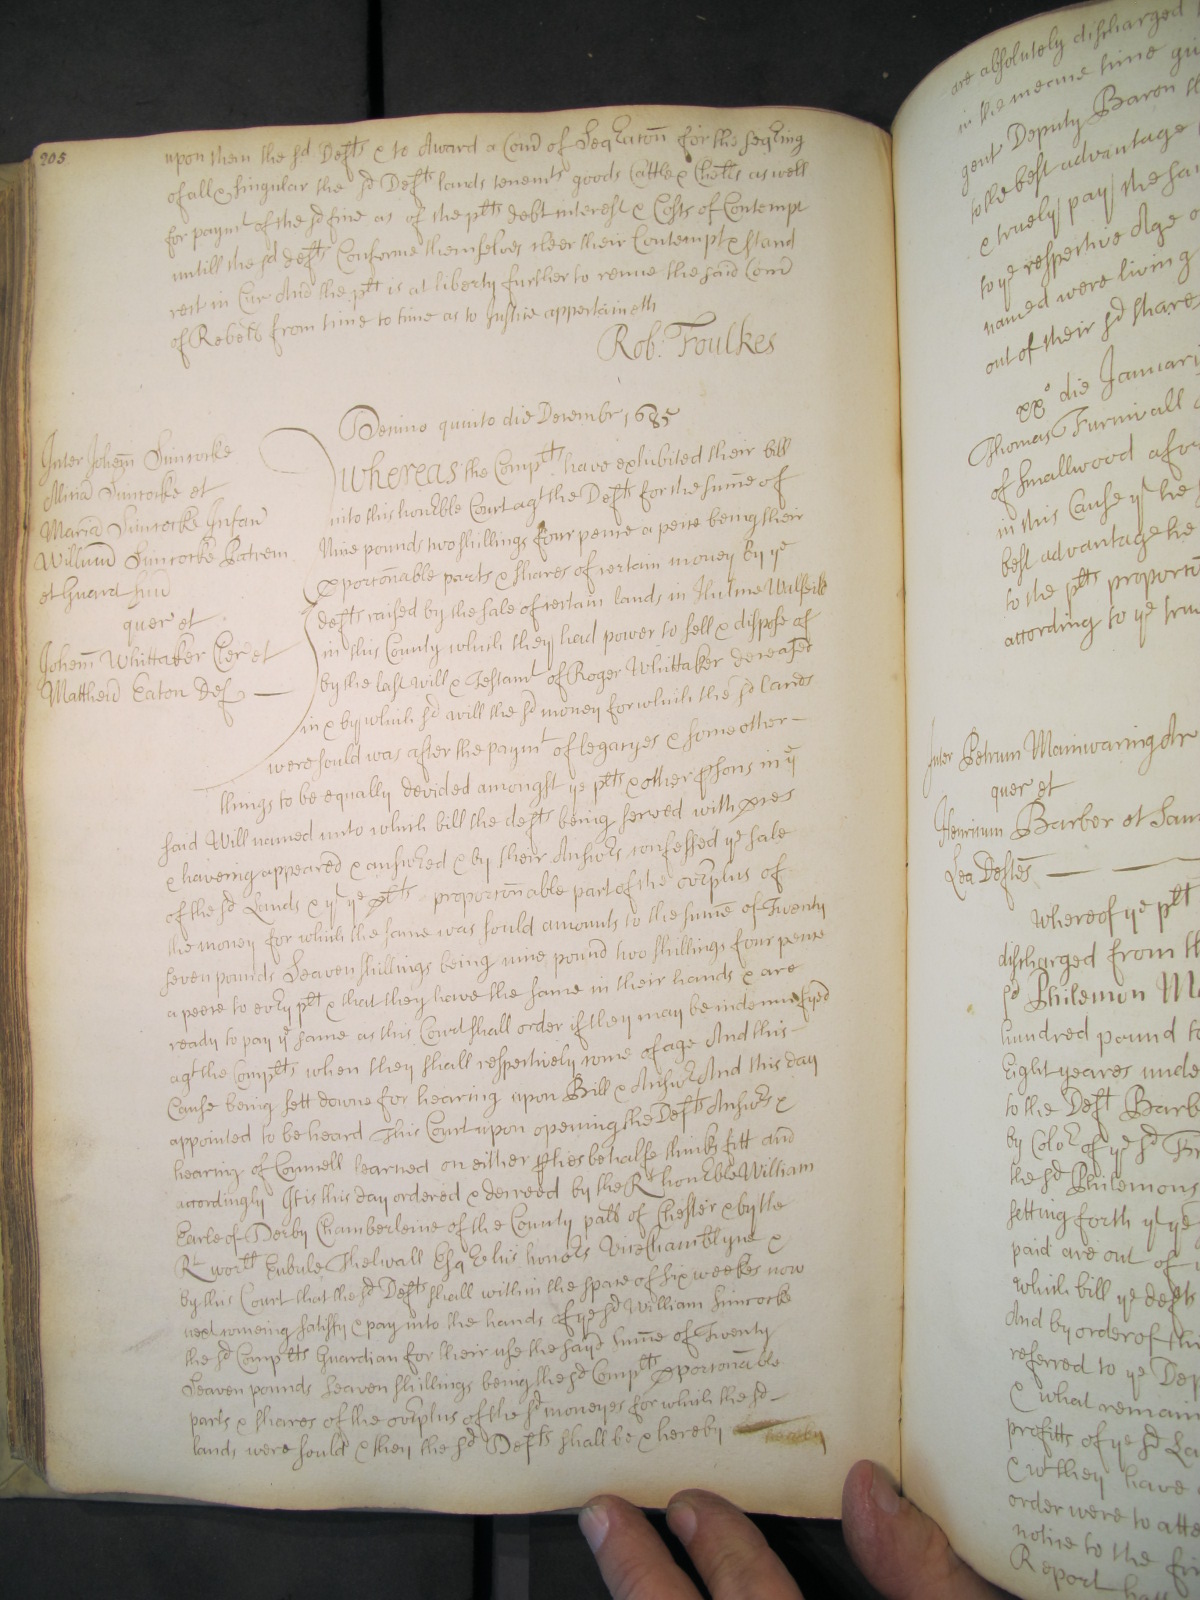 205
upon them the sd Defts & to Award a Comd of Seqraton for the seqring
of all & singular the sd Defts lands tenemts goods Cattle & Chells as well
for paymt of the sd fine as of the plts debt interest & Costs of Contempt
untill the sd defts Conforme themselves cleer their Contempt & stand
rect in Cur And the plt is at liberty further to renue the said Comd
of Rebell from time to time as to Justice appertaineth
Rob: Foulkes
Decimo quinto die Decembr 1685
Inter Johem Simcocke
Miriā Simcocke et
Mariā Simcocke Infan
Willum Simcocke Patrem
et Guard suū
quer et
Johem Whittaker Cler et
Mattheū Eaton Def
Whereas the Complts have exhibited their bill
into this honrble Court agt the Defts for the sume of
Nine pounds two shillings four pence a peice being their
pportonable parts & shares of certain money by ye
defts raised by the sale of certain lands in Hulme Walfeild
in this County which they had power to sell & dispose of
by the last will & Testamt of Roger Whittaker deceased
in & by which sd will the sd money for which the sd lands
were sould was after the paymt of legacyes & some other
things to be equally devided amongst ye plts & other psons in ye
said Will named unto which bill the defts being served with pces
& haveing appeared & answred & by their Answrs confessed ye sale
of the sd Lands & yt ye plts proportonable part of the ovrplus of
the money for which the same was sould amounts to the sume of Twenty
seven pounds Seaven shillings being nine pound two shillings four pence
a peece to evry plt & that they have the same in their hands & are
ready to pay ye same as this Court shall order if they may be indemnifyed
agt the Complts when they shall respectively come of age And this
Cause being sett downe for hearing upon Bill & Answr And this day
appointed to be heard This Court upon opening the Defts Answrs &
hearing of Councell learned on either pties behalfe thinks fitt and
accordingly It is this day ordered & decreed by the Rt honrble William
Earle of Derby Chamberleine of the County pall of Chester & by the
Rt worll Eubule Thelwall Esqre his honors Vicechamblyne &
by this Court that the sd Defts shall within the space of six weekes now
next comeing satisfy & pay into the hands of ye sd William Simcocke
the sd Complts Guardian for their use the sayd sume of Twenty
Seaven pounds Seaven shillings being the sd Complts pportonable
parts & shares of the ovrplus of the sd moneyes for which the sd
lands were sould & they the sd Defts shall be & hereby
are absolutely discharged
in the meane time
gent Deputy Baron
to the best advantage
& truely pay the
to ye respective Age
named were living
out of their sd share
xxo die Januarij
Thomas Furnivall
of Smallwood
in this Cause ye
best advantage he
to the plts
according to ye
Inter Petrum Mainwaring
quer et
Henricum Barber et
Lea Deftes
Whereof ye plt
discharged from
sd Philemon
hundred pound
Eight yeares
to the Deft
by Color of ye sd
the sd Philemons
setting forth yt ye
paid are out of
which bill ye defts
And by order of this
referred to ye
& what
profitts of ye sd
& wt they have
order were to
notice to the
Report